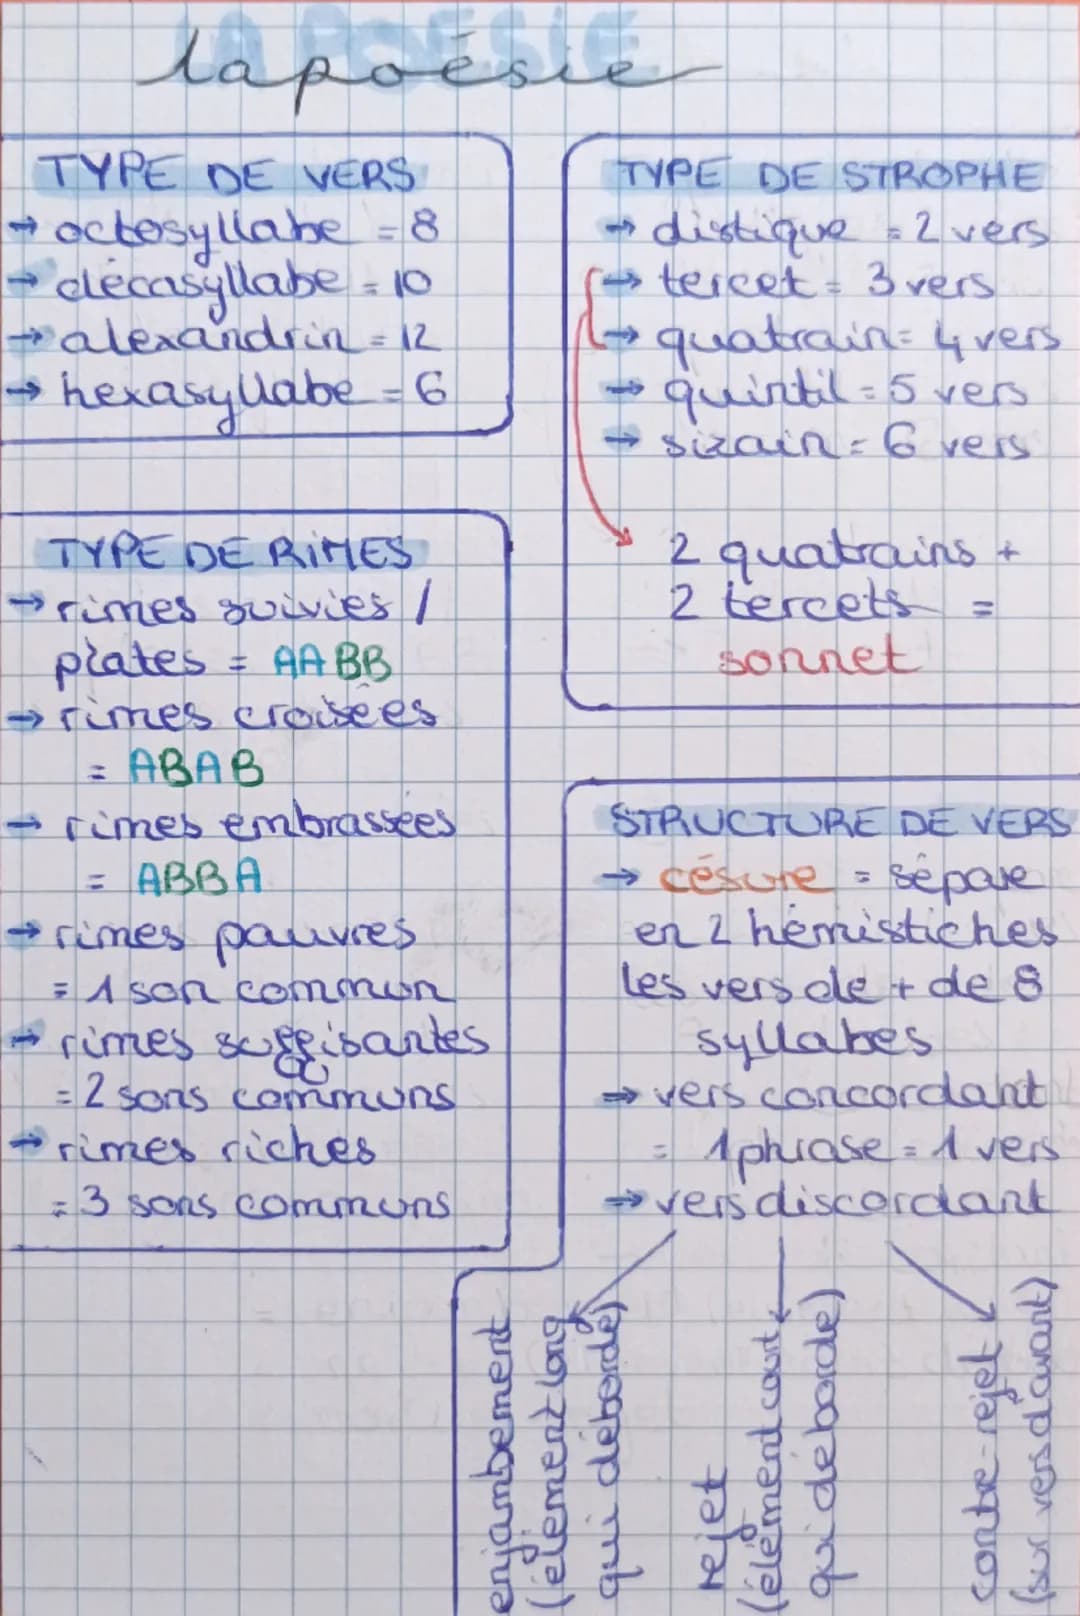 LA POÉSIE
la poésie
TYPE DE VERS
→ octosyllabe = 8
→ décasyllabe = 10
→ alexandrin = 12
→ hexasyllabe = 6
TYPE DE STROPHE
→ distique = 2 vers
→ tercet = 3 vers
→ quatrain = 4 vers
→ quintil = 5 vers
→ sizain = 6 vers
2 quatrains +
2 tercets =
sonnet
TYPE DE RIMES
→ rimes suivies /
plates = AABB
→ rimes croisées
= ABAB
→ rimes embrassées
= ABBA
→ rimes pauvres
= 1 son commun
→ rimes suffisantes
= 2 sons communs
→ rimes riches
= 3 sons communs
STRUCTURE DE VERS
→ césure = sépare
en 2 hémistiches
les vers de + de 8
syllabes
→ vers concordant
= 1 phrase = 1 vers
→ vers discordant
enjambement
(élément long
qui déborde)
rejet
(élément court
qui deborde)
contre-rejet
(sur vers d'avant)